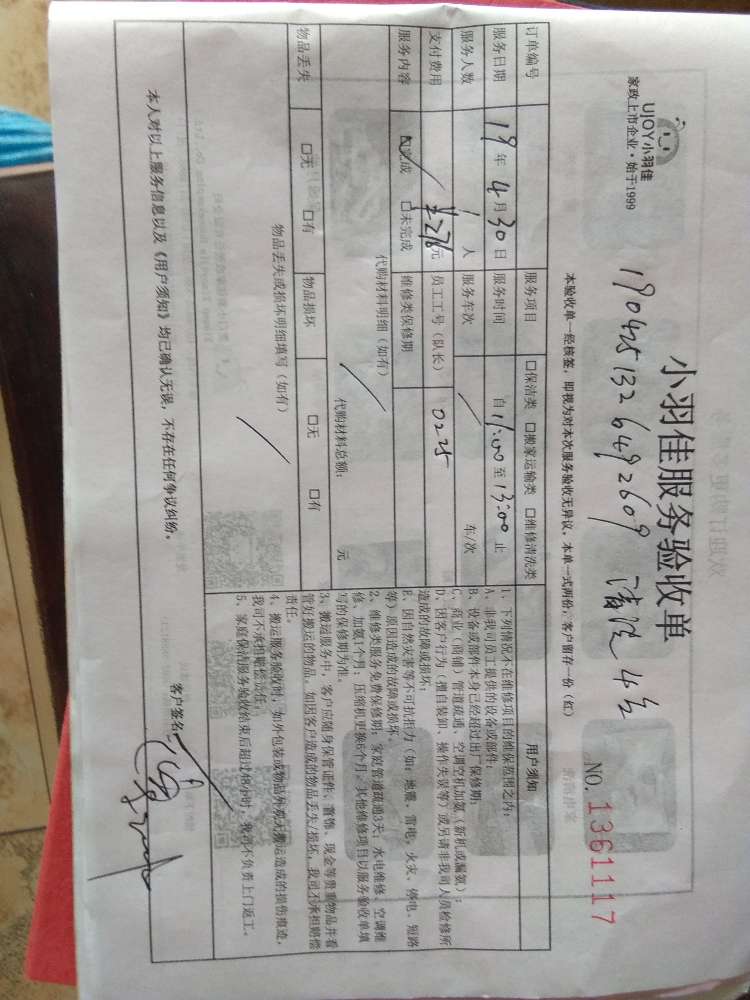 小羽佳服务验收单
UJOY小羽佳
家政上市企业·始于1999
NO.1361117
1904251326492609 清洗4台
本验收单一经核签，即视为对本次服务验收无异议。本单一式两份，客户留存一份（红）
订单编号
服务项目 □保洁类 □搬家运输类 □维修清洗类
服务日期 19年4月30日 服务时间 自11:00至13:00止
服务人数 1人 服务车次 / 车/次
支付费用 ¥276元 员工工号（队长） 0225
服务内容 ☑完成 □未完成 维修类保修期
代购材料明细（如有）
/
代购材料总额： 元
物品丢失 □无 □有 物品损坏 □无 □有
物品丢失或损坏明细填写（如有）
/
用户须知
1、下列情况不在维修项目的维保范围之内：
A、非我司员工提供的设备或部件；
B、设备或部件本身已经超过出厂保修期；
C、商业（商铺）管道疏通、空调空机加氨（新机或漏氨）；
D、因客户行为（擅自装卸、操作失误等）或另请非我司人员检修所
造成的故障或损坏；
E、因自然灾害等不可抗拒力（如：地震、雷电、火灾、停电、短路
等）原因造成的故障或损坏。
2、维修类服务免费保修期：家庭管道疏通3天；水电维修、空调维
修、加氨1个月；压缩机更换6个月。其他维修项目以服务验收单填
写的保修期为准。
3、搬运服务中，客户应随身保管证件、首饰、现金等贵重物品并看
管好搬运的物品，如因客户造成的物品丢失/损坏，我司不承担赔偿
责任。
4、搬运服务验收时，如外包装或物品外观无搬运造成的损伤痕迹，
我司不承担赔偿责任。
5、家庭保洁服务验收结束后超过48小时，我司不负责上门返工。
本人对以上服务信息以及《用户须知》均已确认无误，不存在任何争议纠纷。
客户签名：